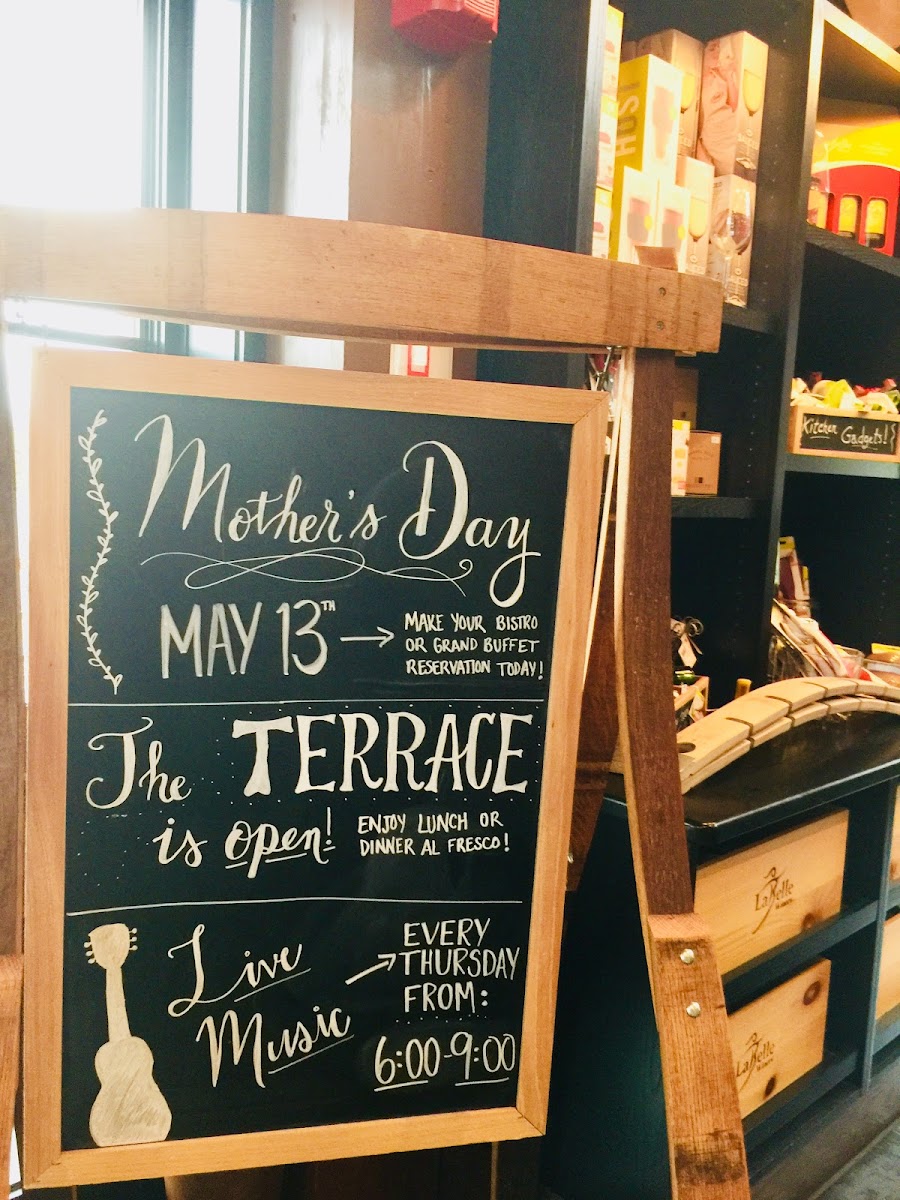 Mother's Day
MAY 13TH →
MAKE YOUR BISTRO
OR GRAND BUFFET
RESERVATION TODAY!
The TERRACE
is open!
ENJOY LUNCH OR
DINNER AL FRESCO!
Live
Music →
EVERY
THURSDAY
FROM:
6:00-9:00
HOST
Kitchen Gadgets!
LaBelle
LaBelle